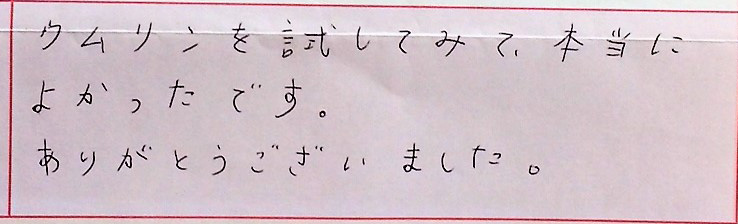 ウムリンを試してみて、本当に
よかったです。
ありがとうございました。